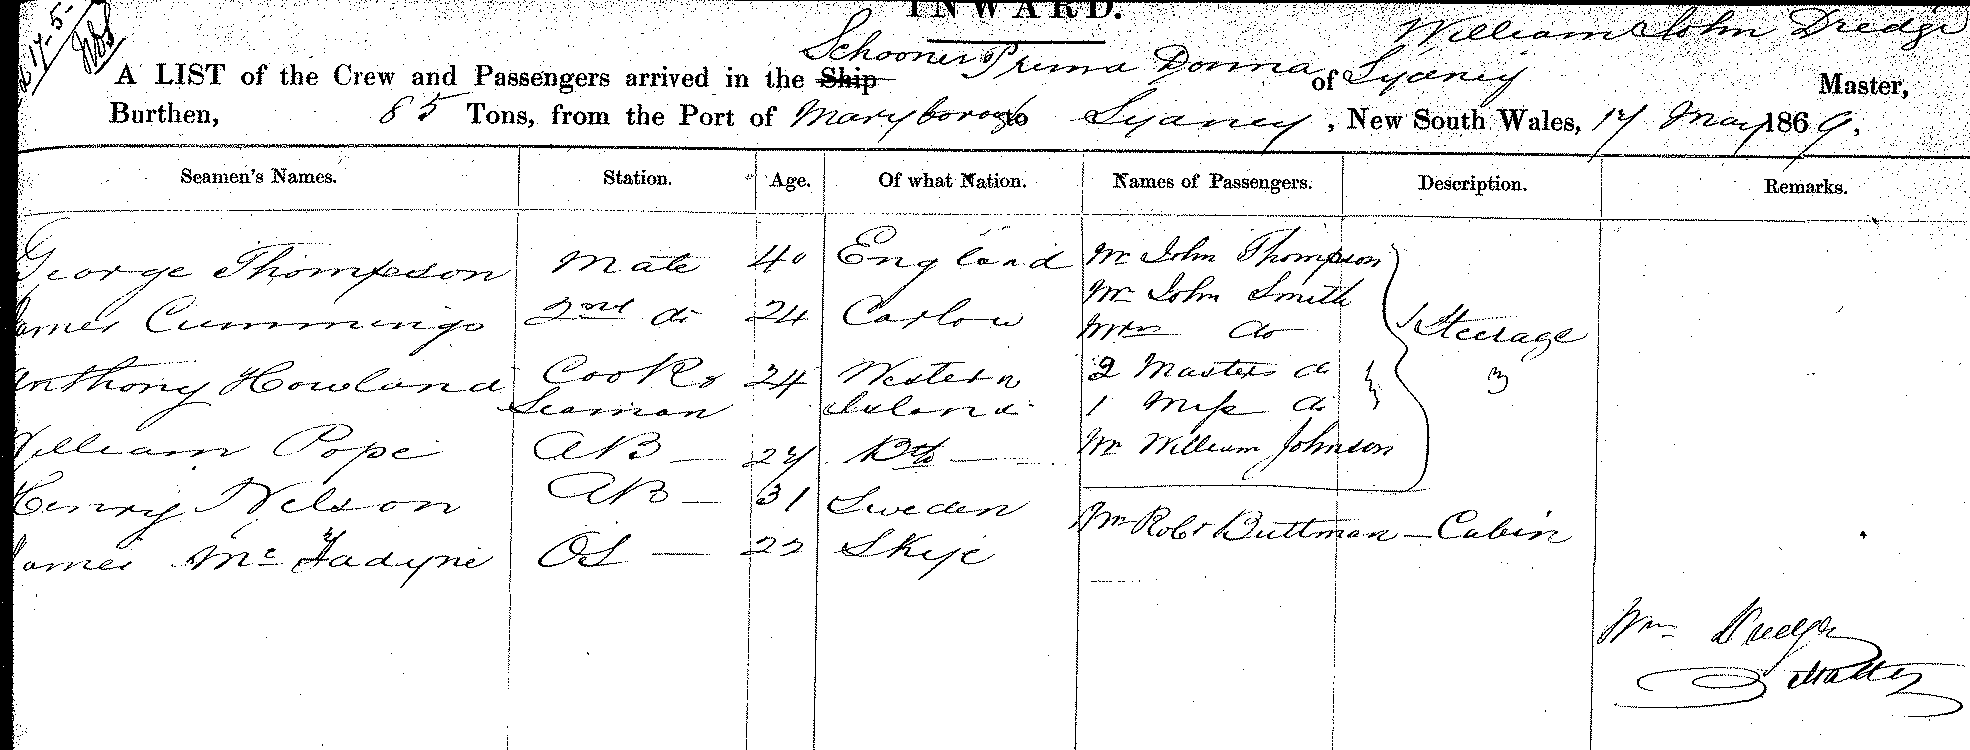 INWARD.
17-5-
William John Dredge
Schooner Prima Donna
A LIST of the Crew and Passengers arrived in the Ship of Sydney Master,
Burthen, 85 Tons, from the Port of Maryborough to Sydney, New South Wales, 17 May 1869.
Seamen's Names. Station. Age. Of what Nation. Names of Passengers. Description. Remarks.
George Thompson Mate 40 England Mr John Thompson
Mr John Smith
James Cummings 2nd do 24 Carlow Mrs do Steerage
Anthony Howland Cook & 24 Western 2 Masters do
Seaman Island 1 Miss do
William Pope AB 27 Mr William Johnson
Henry Nelson AB 31 Sweden
Mr Robt Buttman - Cabin
James Mc Fadyne OS 22 Skye
Wm Dredge
Master